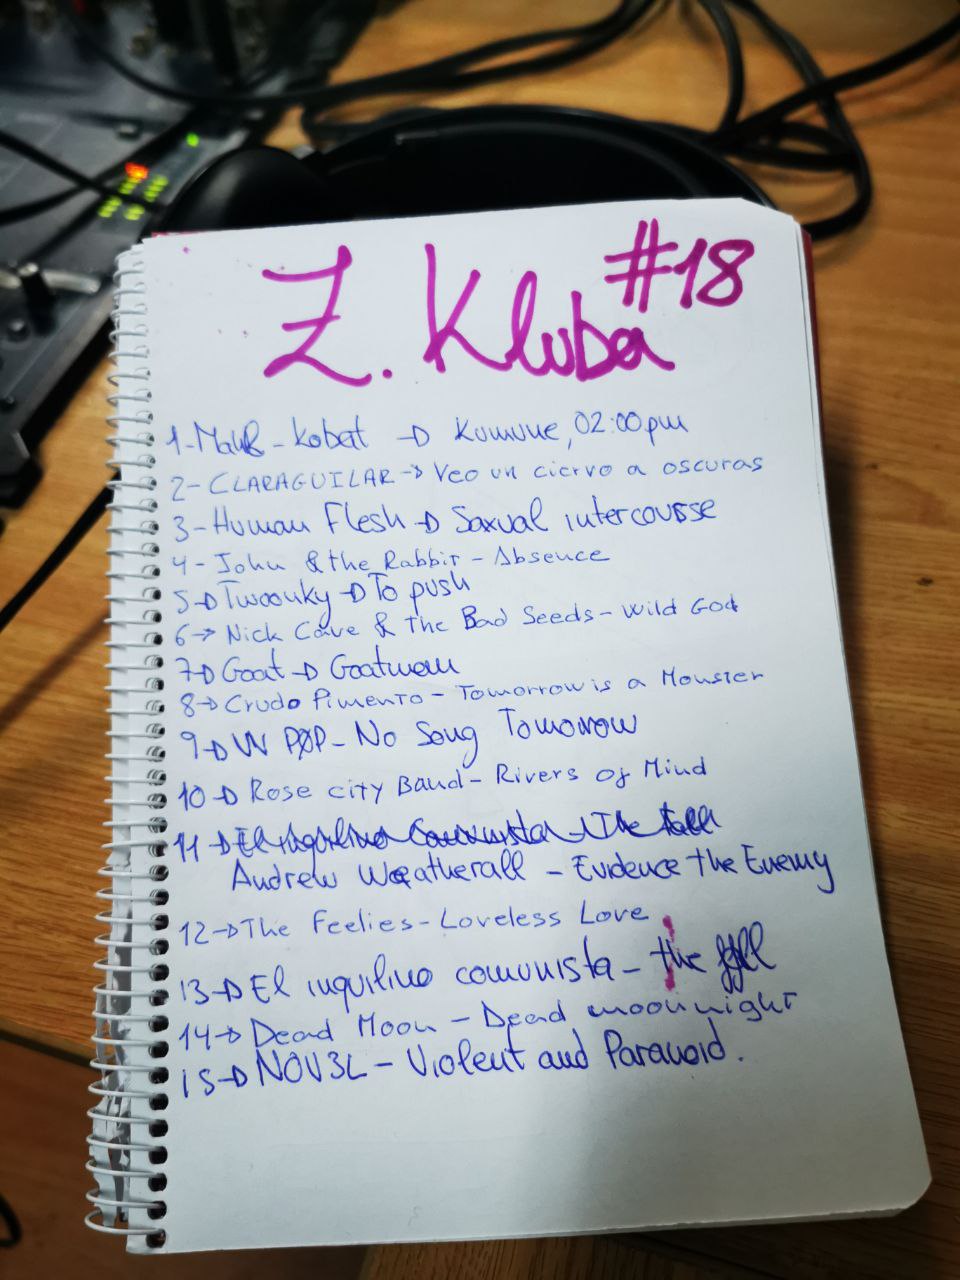 #18
Z. Kluba
1- - Kobat → Kumune, 02:00pm
2- CLARAGUILAR → Veo un ciervo a oscuras
3- Human Flesh → Saxual intercourse
4- John & the Rabbit - Absence
5→ Twoonky → To push
6→ Nick Cave & the Bad Seeds - Wild God
7→ Goat → Goatman
8→ Crudo Pimento - Tomorrow is a Monster
9→ VV PØP - No Song Tomorrow
10→ Rose city Band - Rivers of Mind
11→ El inquilino Comunista - The fall
Andrew Weatherall - Evidence the Enemy
12→ The Feelies - Loveless Love
13→ El inquilino comunista - the fall
14→ Dead Moon - Dead moon night
15→ NOV3L - Violent and Paranoid.